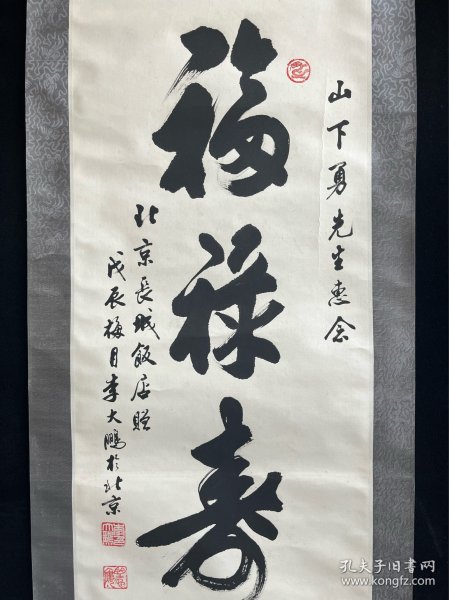 山下勇先生惠念
福禄寿
北京長城飯店贈
戊辰梅月李大鵬於北京
孔夫子旧书网
www.kongfz.com